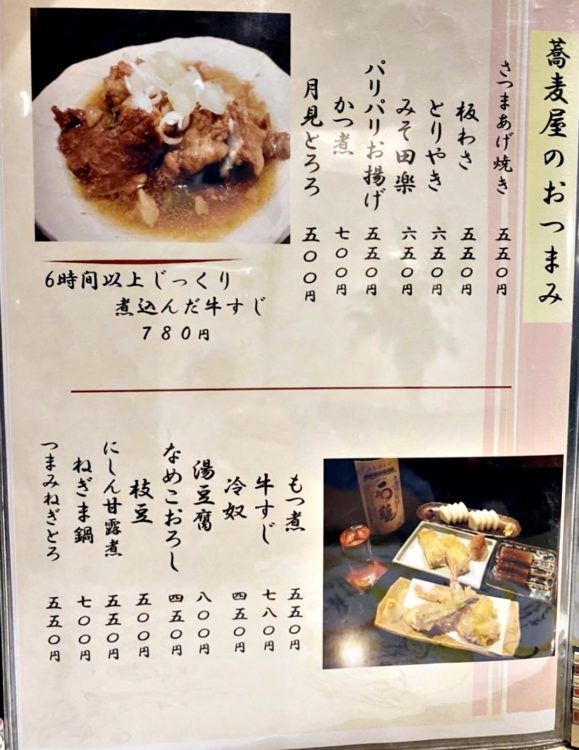 蕎麦屋のおつまみ
さつまあげ焼き 五五〇円
板わさ 五五〇円
とりやき 六五〇円
みそ田楽 六五〇円
パリパリお揚げ 五五〇円
かつ煮 七〇〇円
月見とろろ 五〇〇円
6時間以上じっくり
煮込んだ牛すじ
780円
もつ煮 五五〇円
牛すじ 七八〇円
冷奴 四五〇円
湯豆腐 八〇〇円
なめこおろし 四五〇円
枝豆 五〇〇円
にしん甘露煮 五五〇円
ねぎま鍋 七〇〇円
つまみねぎとろ 五五〇円